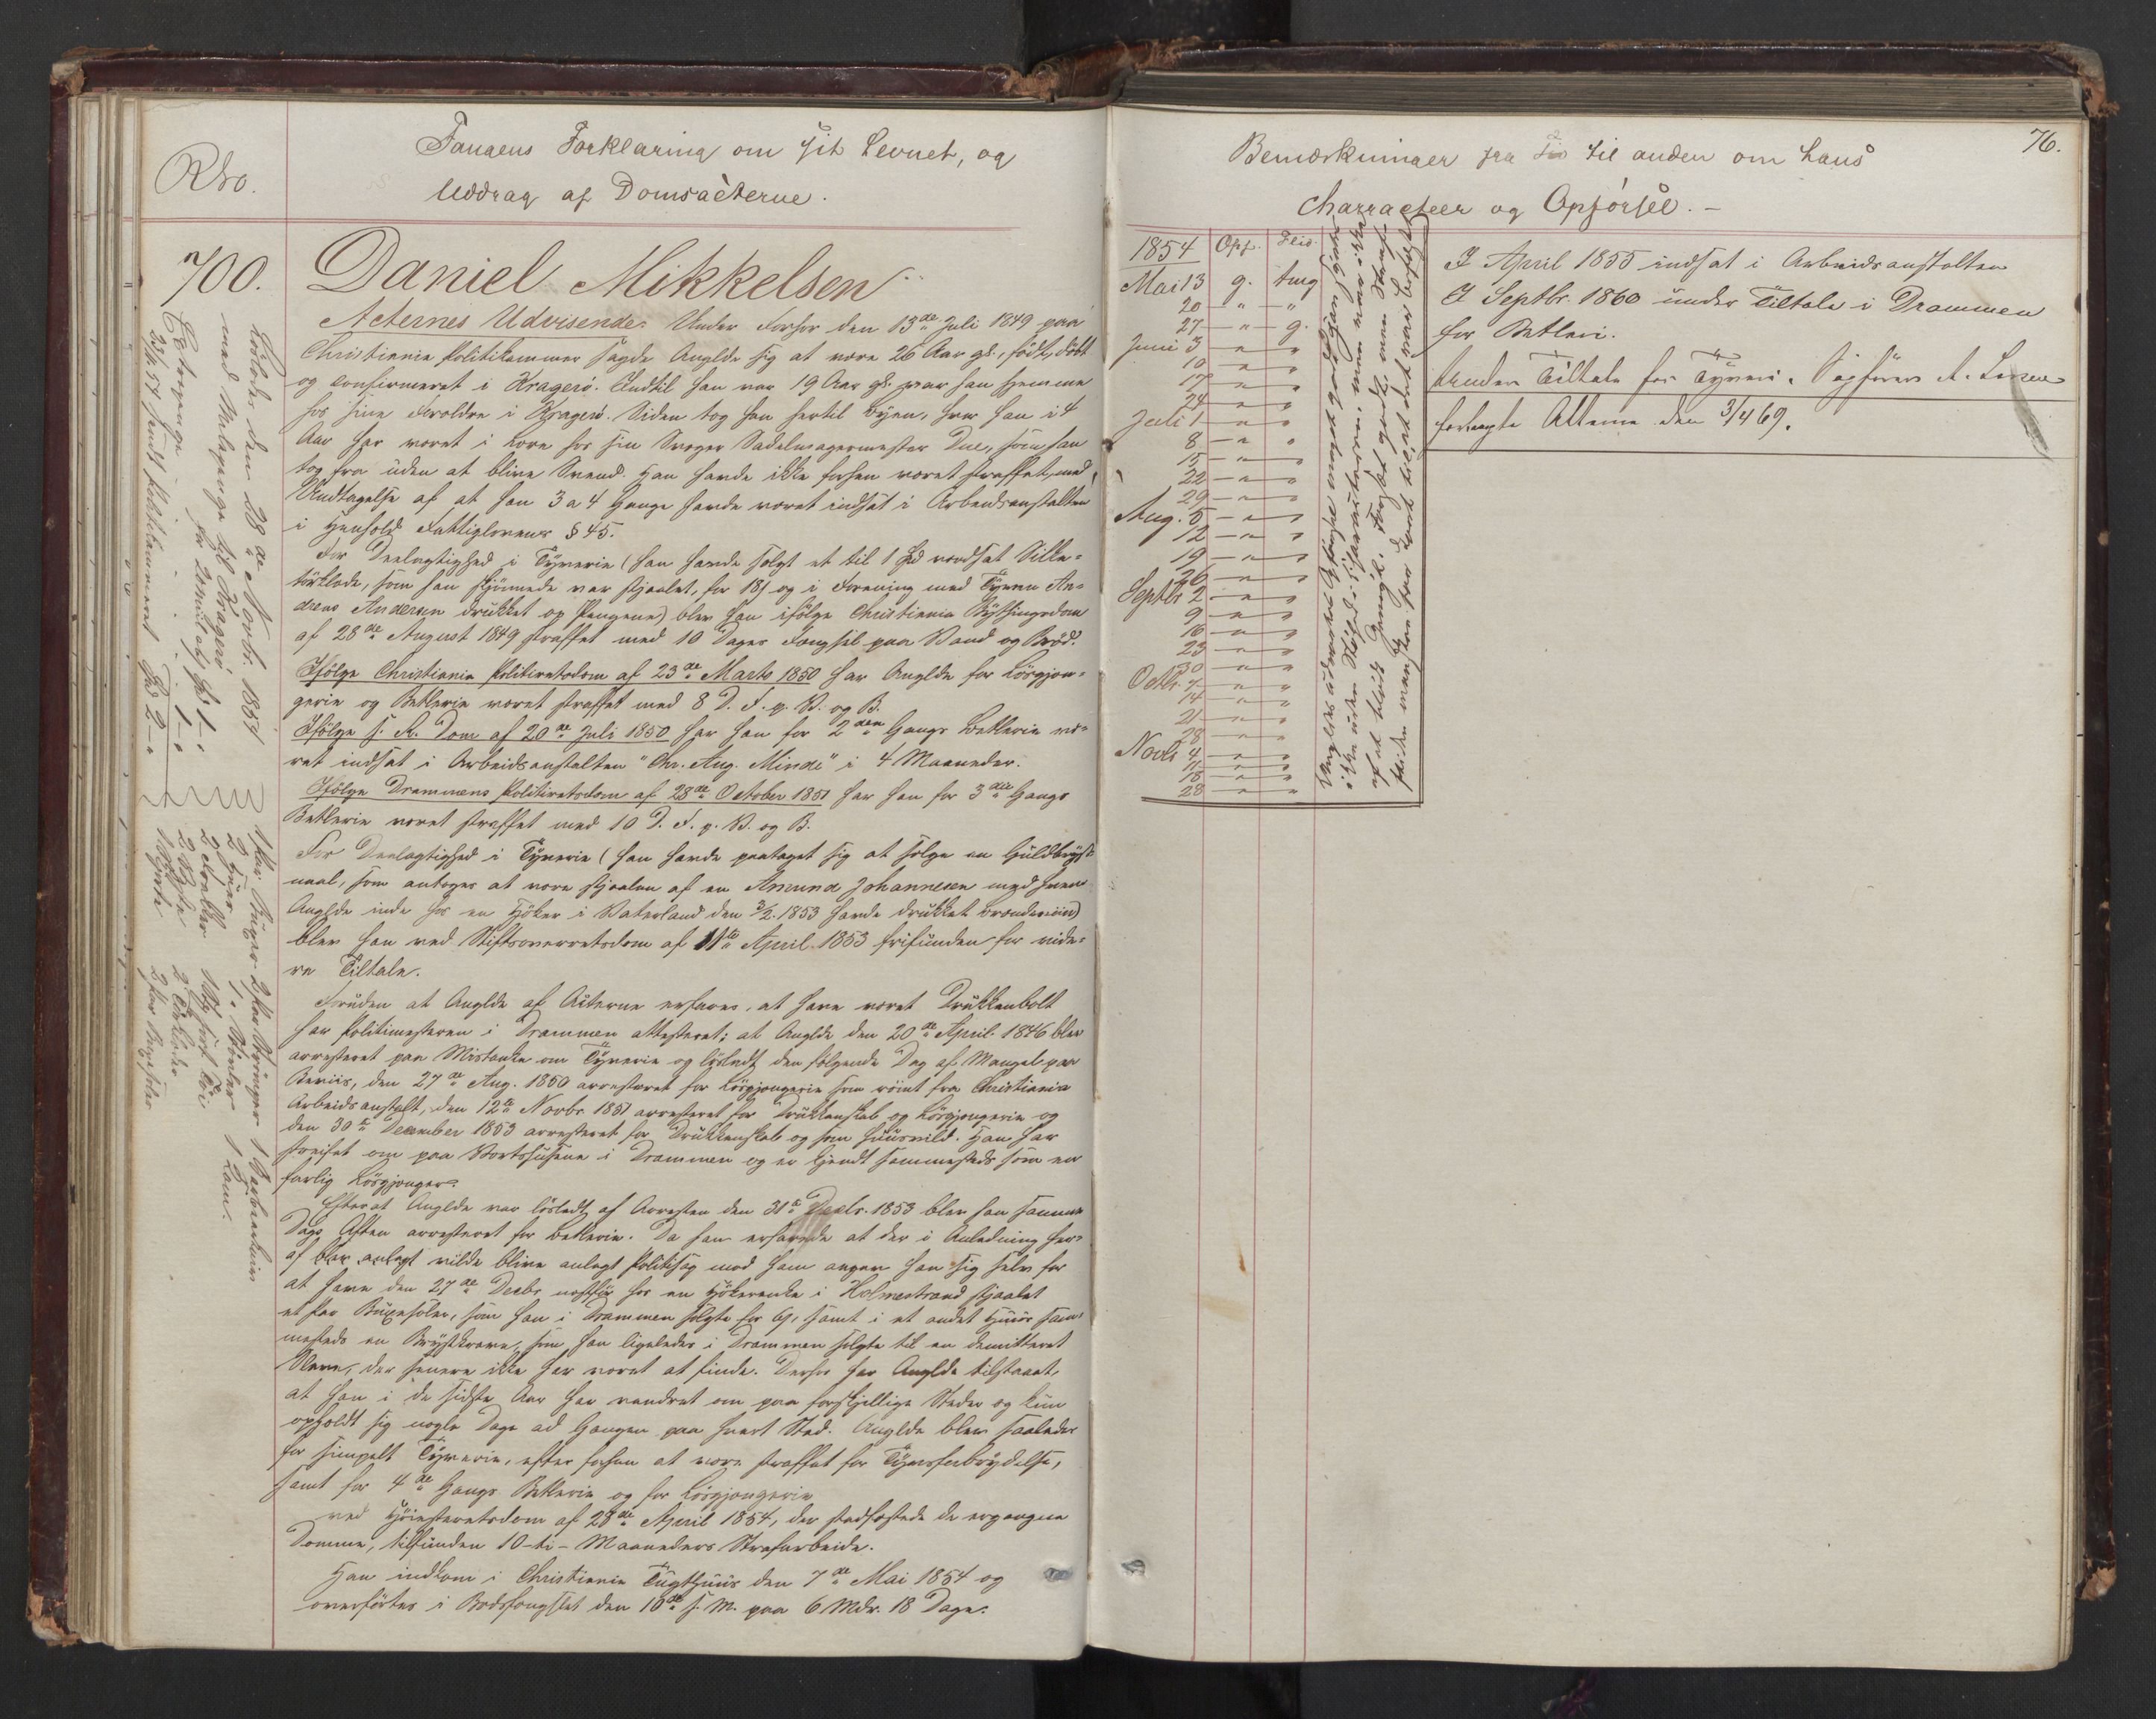 Fangens Forklaring om sit Levnet, og
Uddrag af Domsacterne.
No.
700.
Daniel Mikkelsen
Acternes Udvisende. Under Forhør den 13de Juli 1849 paa
Christiania Politikammer sagde Anglde sig at være 26 Aar gl., født, døbt
og confirmeret i Kragerø. Indtil han var 19 Aar gl. var han hjemme
hos sine Forældre i Kragerø. Siden tog han hertil Byen, hvor han i 4
Aar har været i Lære hos sin Svoger Sadelmagermester Due, som han
tog fra uden at blive Svend. Han havde ikke forhen været straffet, med
Undtagelse af at han 3 a 4 Gange havde været indsat i Arbeidsanstalten
i Henhold Fattiglovens § 45.
For Deelagtighed i Tyverie (han havde solgt et til 1 Spd værdsat Silke-
tørklæde, som han skjønnede var stjaalet, for 18 s og i Forening med Tyven An-
dreas Andersen drukket op Pengene) blev han ifølge Christiania Bythingsdom
af 28de August 1849 straffet med 10 Dages Fængsel paa Vand og Brød.
Ifølge Christiania Politiretsdom af 23de Marts 1850 har Anglde for Løsgjæn-
gerie og Betlerie været straffet med 8 D. F. p. V. og B.
Ifølge s. R. Dom af 20de Juli 1850 har han for 2den Gangs Betlerie væ-
ret indsat i Arbeidsanstalten "Chr. Aug. Minde" i 4 Maaneder.
Ifølge Drammens Politiretsdom af 28de October 1851 har han for 3die Gangs
Betlerie været straffet med 10 D. F. p. V. og B.
For Deelagtighed i Tyverie (han havde paataget sig at sælge en Guldbryst-
naal, som antoges at være stjaalen af en Amund Johannesen med hvem
Anglde inde hos en Høker i Vaterland den 3/2 1853 havde drukket Brændeviin)
blev han ved Stiftsoverretsdom af 11te April 1853 frifunden for vide-
re Tiltale.
Foruden at Anglde af Acterne erfares, at have været Drukkenbolt
har Politimesteren i Drammen attesteret: at Anglde den 20de April 1846 blev
arresteret paa Mistanke om Tyverie og løsladt den følgende Dag af Mangel paa
Beviis, den 27de Aug. 1850 arresteret for Løsgjængerie som rømt fra Christiania
Arbeidsanstalt, den 12te Novbr 1851 arresteret for Drukkenskab og Løsgjængerie og
den 30te December 1853 arresteret for Drukkenskab og som huusvild. Han har
streifet om paa Værtshusene i Drammen og er kjendt sammesteds som en
farlig Løsgjænger.
Efterat Anglde var løsladt af Arresten den 31te Decbr. 1853 blev han samme
Dags Aften arresteret for Betlerie. Da han erfarede at der i Anledning her-
af blev anlagt vilde blive anlagt Politisag mod ham angav han sig selv for
at have den 27de Decbr næstfør hos en Høkerenke i Holmestrand stjaalet
et Par Buxeseler, som han i Drammen solgte for 6 s, samt i et andet Huus sam-
mesteds en Brystkrave, som han ligeledes i Drammen solgte til en demitteret
Slave, der senere ikke har været at finde. Derhos har Anglde tilstaaet,
at han i de sidste Aar har vandret om paa forskjellige Steder og kun
opholdt sig nogle Dage ad Gangen paa hvert Sted. Anglde blev saaledes
for simpelt Tyverie, efter forhen at være straffet for Tyvsforbrydelse,
samt for 4de Gangs Betlerie og for Løsgjængerie
ved Høiesteretsdom af 28de April 1854, der stadfæstede de ergangne
Domme, tilfunden 10-ti-Maaneders Strafarbeide.
Han indkom i Christiania Tugthuus den 7de Mai 1854 og
overførtes i Bodsfængslet den 10de s. M. paa 6 Mdr. 18 Dage.
Løsladt den 28de Novbr. 1854
med Reisepenge til Kragerø
1 Par Buxer
2 Trøier
2 Skjorter
1 Vest
76.
Bemærkninger fra Tid til anden om hans
Charracteer og Opførsel.-
1854 Opf. Flid.
Mai 13 g. tmg
20 " "
27 " g.
Juni 3 " "
10 " "
17 " "
24 " "
Juli 1 " "
8 " "
15 " "
22 " "
29 " "
Aug. 5 " "
12 " "
19 " "
26 " "
Septbr 2 " "
9 " "
16 " "
23 " "
30 " "
Octbr. 7 " "
14 " "
21 " "
28 " "
Novbr 4 " "
11 " "
18 " "
28 " "
I April 1855 indsat i Arbeidsanstalten
I Septbr. 1860 under Tiltale i Drammen
for Betleri.
Under Tiltale for Tyveri. Sagfører A.
forlangte Akterne den 3/4 69.